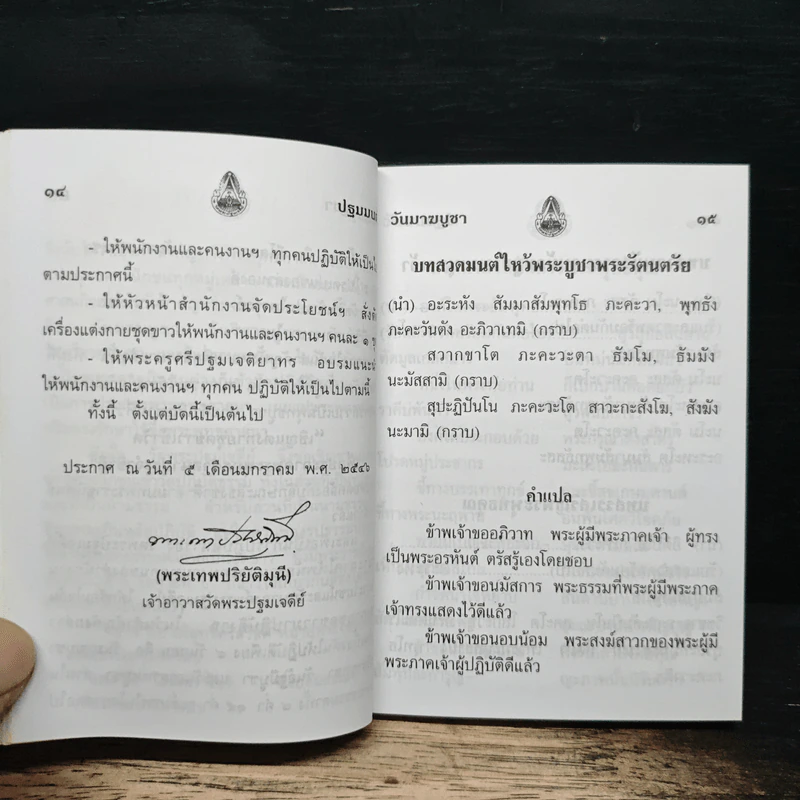 ๑๔
ปฐมมน
- ให้พนักงานและคนงานฯ ทุกคนปฏิบัติให้เป็นไ
ตามประกาศนี้
- ให้หัวหน้าสำนักงานจัดประโยชน์ฯ สั่ง
เครื่องแต่งกายชุดขาวให้พนักงานและคนงานฯ คนละ ๑
- ให้พระครูศรีปฐมเจติยาทร อบรมแนะ
ให้พนักงานและคนงานฯ ทุกคน ปฏิบัติให้เป็นไปตามนี้
ทั้งนี้ ตั้งแต่บัดนี้เป็นต้นไป
ประกาศ ณ วันที่ ๕ เดือนมกราคม พ.ศ. ๒๕๔๖
(พระเทพปริยัติมุนี)
เจ้าอาวาสวัดพระปฐมเจดีย์
วันมาฆบูชา
๑๕
บทสวดมนต์ไหว้พระบูชาพระรัตนตรัย
(นำ) อะระหัง สัมมาสัมพุทโธ ภะคะวา, พุทธัง
ภะคะวันตัง อะภิวาเทมิ (กราบ)
สวากขาโต ภะคะวะตา ธัมโม, ธัมมัง
นะมัสสามิ (กราบ)
สุปะฏิปันโน ภะคะวะโต สาวะกะสังโฆ, สังฆัง
นะมามิ (กราบ)
คำแปล
ข้าพเจ้าขออภิวาท พระผู้มีพระภาคเจ้า ผู้ทรง
เป็นพระอรหันต์ ตรัสรู้เองโดยชอบ
ข้าพเจ้าขอนมัสการ พระธรรมที่พระผู้มีพระภาค
เจ้าทรงแสดงไว้ดีแล้ว
ข้าพเจ้าขอนอบน้อม พระสงฆ์สาวกของพระผู้มี
พระภาคเจ้าผู้ปฏิบัติดีแล้ว